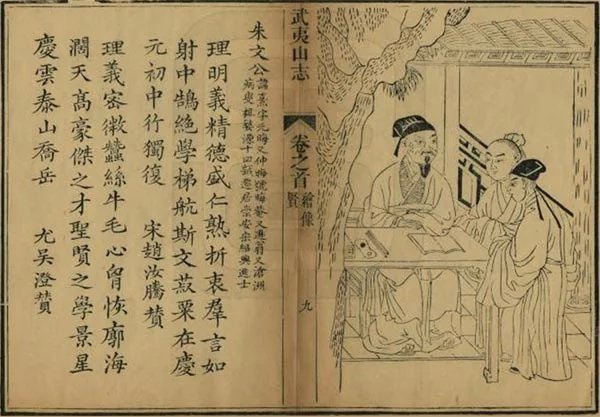 武夷山志
卷之首
繪像
賢
九
朱文公
諱熹字元晦又仲晦號晦菴又遯翁又滄洲
病叟祖婺源十四歲遷居崇安宗紹興進士
理明義精德盛仁熟折衷羣言如
射中鵠絕學梯航斯文菽粟在慶
元初中行獨復 宋趙汝騰贊
理義密微蠶絲牛毛心胷恢廓海
濶天髙豪傑之才聖賢之學景星
慶雲泰山喬岳 尤吳澄贊